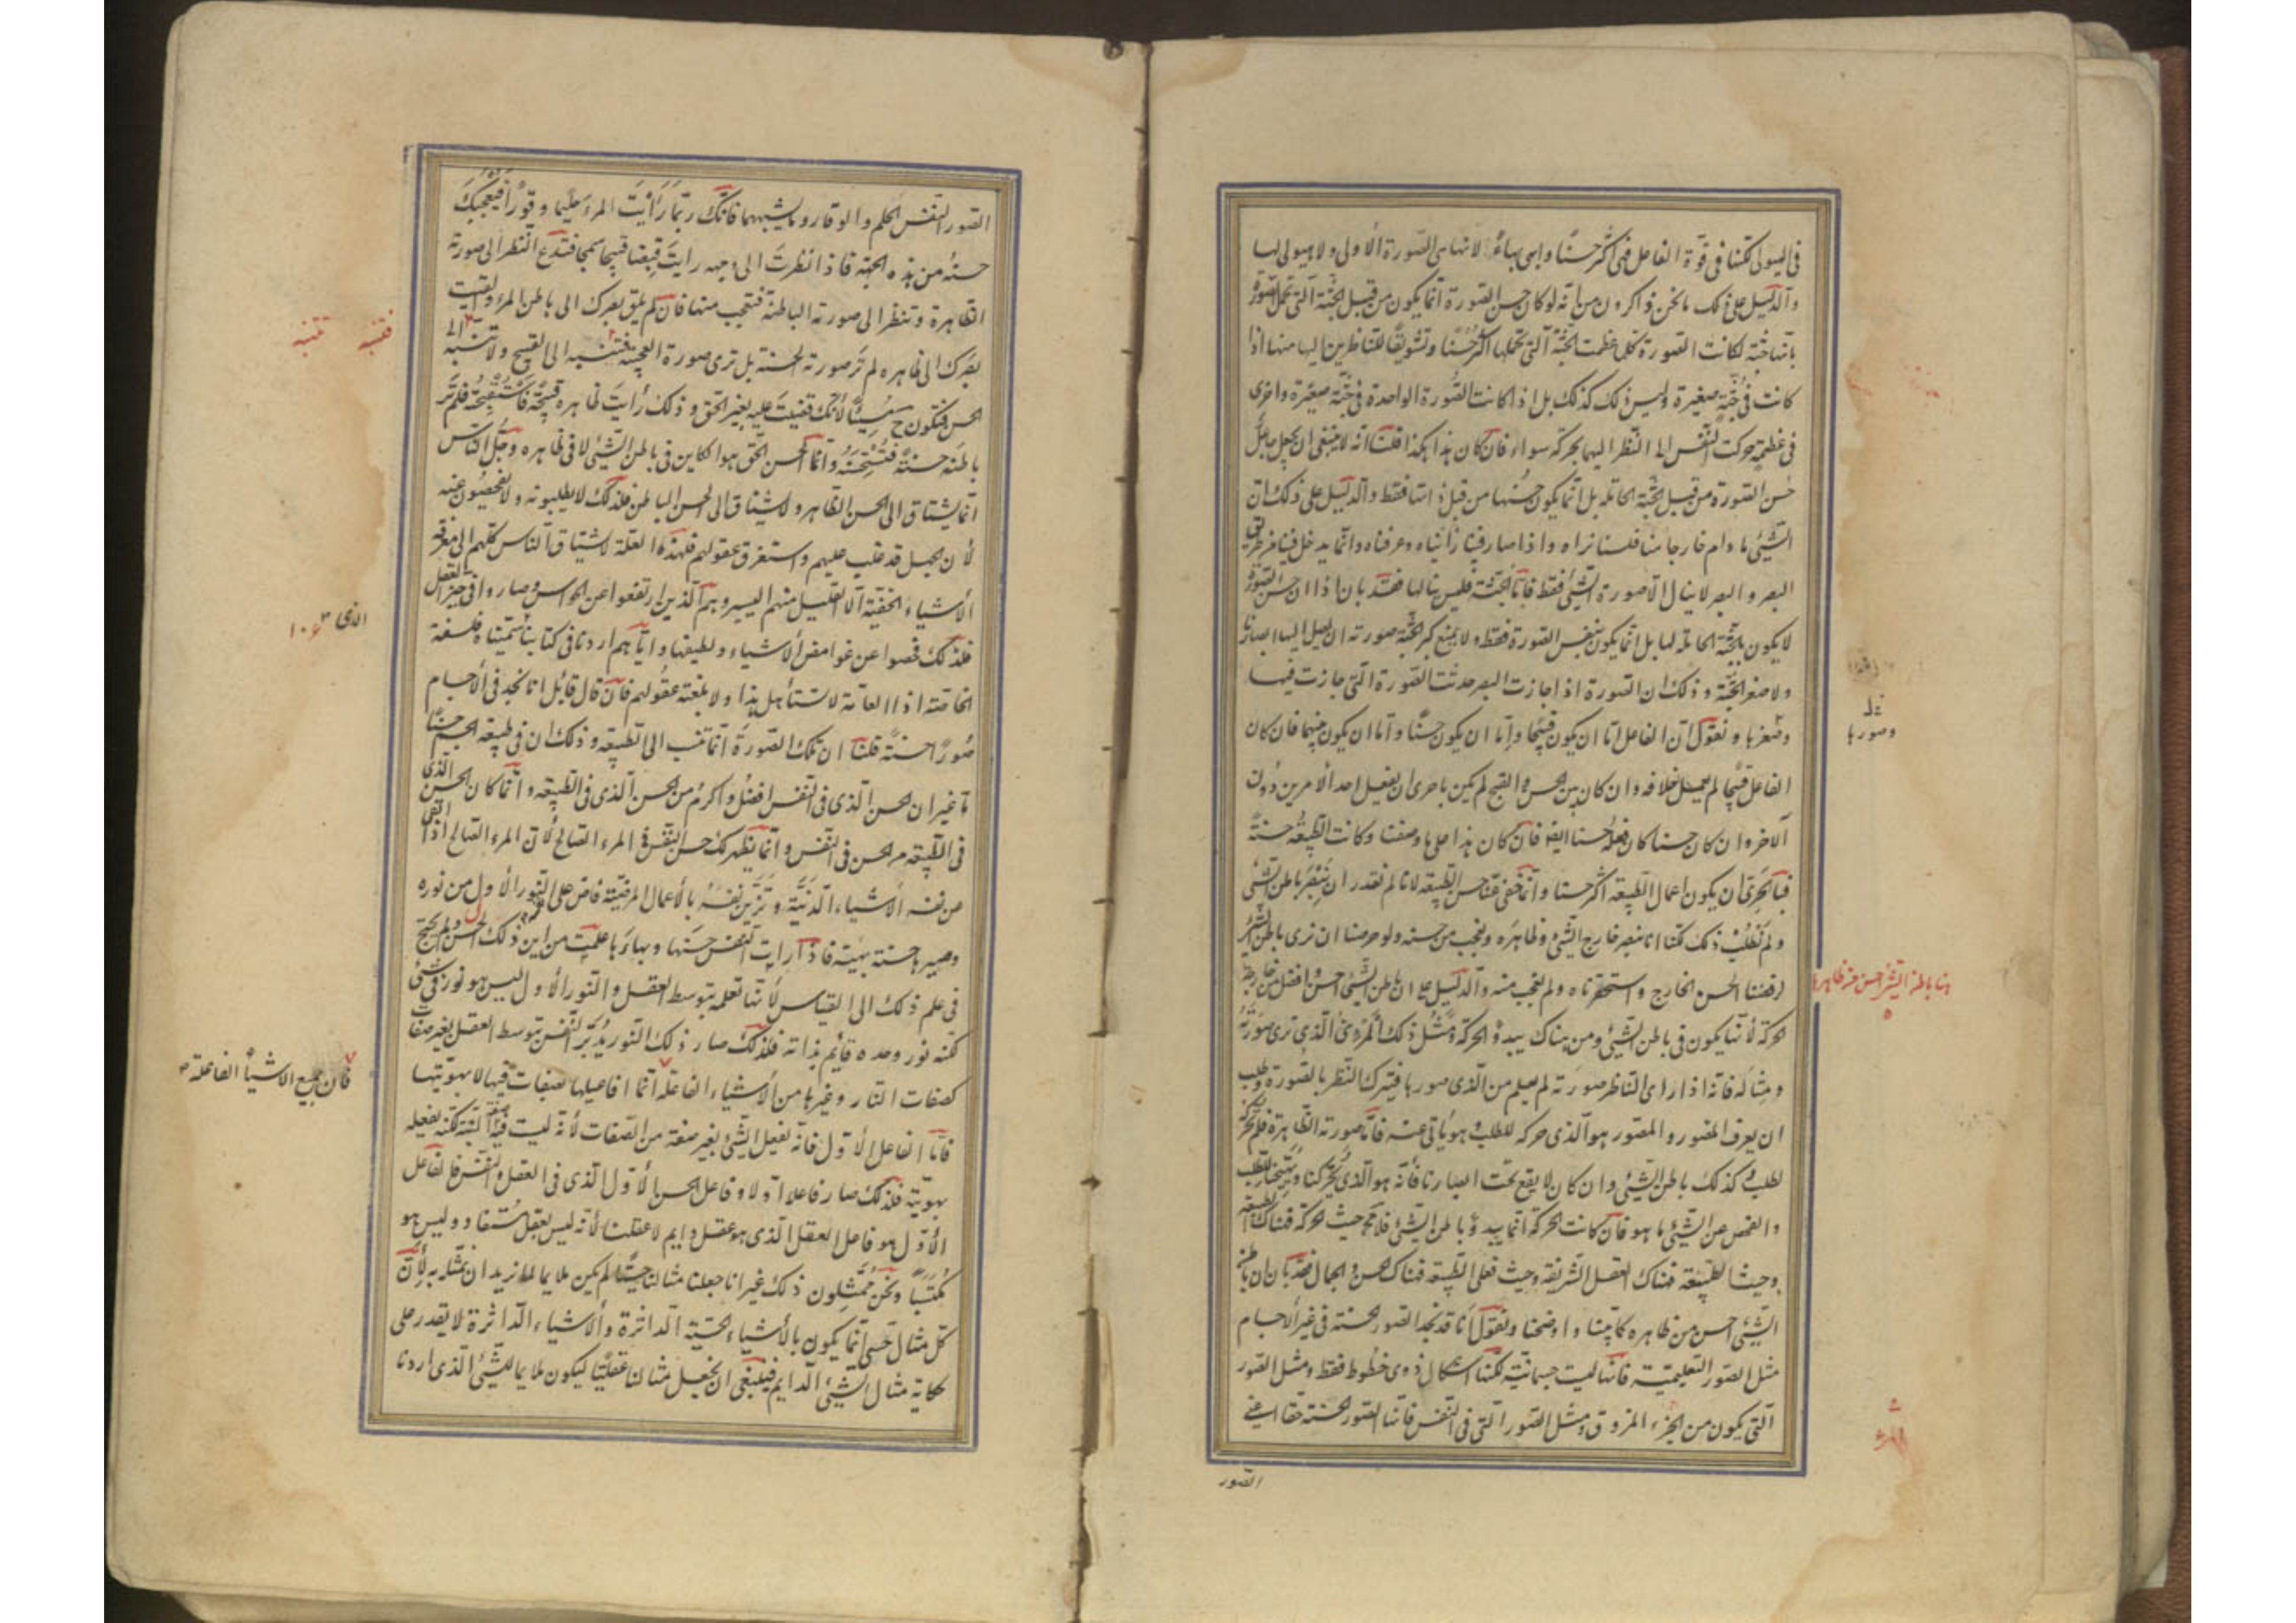 فى الهيولى لكنها فى قوة الفاعل فهى اكثر حسنا وابهى بهاء لانها هى الصورة الاولى ولا هيولى لها
والدليل على ذلك ما نحن ذاكرون من انه لو كان حسن الصورة انما يكون من قبل الجثة التى تحمل الصورة
بانها جثة لكانت الصورة كلما عظمت الجثة التى تحملها اكثر حسنا وتشويقا للناظرين اليها منها اذا
كانت فى جثة صغيرة وليس ذلك كذلك بل اذا كانت الصورة الواحدة فى جثة صغيرة واخرى
فى عظيمة حركت النفس الى النظر اليهما بحركة سواء فان كان هذا هكذا قلنا انه لا ينبغى ان يجعل جاعل
حسن الصورة من قبل الجثة الحاملة بل انما يكون حسنها من قبل ذاتها فقط والدليل على ذلك ان
الشيئ ما دام خارجا منا فلسنا نراه واذا صار فينا رأيناه وعرفناه وانما يدخل فينا من طريق
البصر والبصر لا ينال الا صورة الشيئ فقط فاما الجثة فليس ينالها فقد بان اذا ان حسن الصورة
لا يكون بالجثة الحاملة لها بل انما يكون بنفس الصورة فقط ولا يمنع كبر الجثة صورته ان يصل الينا ابصارنا
ولا صغر الجثة وذلك ان الصورة اذا جازت البصر حدثت الصورة التى جازت فيها
وصغرها ونقول ان الفاعل اما ان يكون قبيحا واما ان يكون حسنا واما ان يكون بينهما فان كان
الفاعل قبيحا لم يعمل خلافه وان كان بين الحسن والقبح لم يكن باحرى ان يفعل احد الامرين دون
الآخر وان كان حسنا كان فعله حسنا ايضا فان كان هذا على ما وصفنا وكانت الطبيعة حسنة
فبالحرى ان يكون اعمال الطبيعة اكثر حسنا وانما خفى عنا حسن الطبيعة لانا لم نقدر ان نبصر باطن الشيئ
ولم نطلب ذلك لكنا انما نبصر خارج الشيئ وظاهره ونعجب من حسنه ولو حرصنا ان نرى باطن الشيئ
لرفضنا الحسن الخارج واستحقرناه ولم نعجب منه والدليل على ان باطن الشيئ احسن وافضل من خارجه
الحركة لأنها يكون فى باطن الشيئ ومن هناك يبدو الحركة ومثل ذلك المرئى الذى ترى صورته
ومثاله فانه اذا راى الناظر صورته لم يعلم من الذى صورها فيترك النظر بالصورة وطلب
ان يعرف المصور والمصور هو الذى حركه للطلب وهو يأتى عنه فاما صورته الظاهرة فلم تحركه
لطلب وكذلك باطن الشيئ وان كان لا يقع تحت ابصارنا فانه هو الذى يحركنا ويهيجنا للطلب
والفحص عن الشيئ ما هو فان كانت الحركة انما يبدو باطن الشيئ فلا محة حيث الحركة فهناك الطبيعة
وحيث الطبيعة فهناك العقل الشريفة وحيث فعل الطبيعة فهناك الحسن والجمال فقد بان ان باطن
الشيئ احسن من ظاهره كما بينا واوضحنا ونقول انا قد نجد الصور الحسنة فى غير الاجسام
مثل الصور التعليمية فانها ليست جسمانية لكنها اشكال ذوى خطوط فقط ومثل الصور
التى يكون من الجزء المزوق ومثل الصور التى فى النفس فانها الصور الحسنة حقا اعنى
الصور
خل
وصورها
هنا باطن الشيئ احسن من ظاهره
الصور النفس الحلم والوقار وما يشبههما فانك ربما رأيت المرء حليما وقورا فيعجبك
حسنه من هذه الجهة فاذا نظرت الى وجهه رايت قبيحا سمجا فتدع النظر الى صورته
الظاهرة وتنظر الى صورته الباطنة فتعجب منها فان لم يلق بصرك الى باطن المرء والقيت
بصرك الى ظاهره لم تر صورته الحسنة بل ترى صورة القبيحة فتنسبه الى القبح ولا تنسبه الى
الحسن فتكون ح مسيئا لأنك قضيت عليه بغير الحق وذلك رأيت ظاهره قبيحة فاستقبحته فلم تر
باطنه حسنة فتستحسنه وانما الحسن الحق هو الكاين فى باطن الشيئ لا فى ظاهره وجل الناس
انما يشتاق الى الحسن الظاهر ولا يشتاق الى الحسن الباطن فلذلك لا يطلبونه ولا يفحصون عنه
لأن الجهل قد غلب عليهم واستغرق عقولهم فلهذه العلة لا يشتاق الناس كلهم الى معرفة
الأشياء الخفية الا القليل منهم اليسير وهم الذين ارتفعوا عن الحواس وصاروا فى حيز العقل
فلذلك فحصوا عن غوامض الأشياء ولطيفها واياهم اردنا فى كتابنا سميناه فلسفة
الخاصة اذ العامة لا تستأهل هذا ولا بلغته عقولهم فان قال قائل انا نجد فى الأجسام
صورا حسنة قلنا ان تلك الصورة انما تنسب الى الطبيعة وذلك ان فى طبيعة الجسم حسنا
ما غير ان الحسن الذى فى النفس افضل واكرم من الحسن الذى فى الطبيعة وانما كان الحسن الذى
فى الطبيعة من الحسن فى النفس وانما يظهر لك حسن النفس فى المرء الصالح لأن المرء الصالح اذا القى
من نفسه الأشياء الدنية وتزين نفسه بالأعمال المرضية فاض على النور الأول من نوره
وصيرها حسنة بهية فاذا رأيت النفس حسنها وبهاءها علمت من اين ذلك الحسن ولم يحتج
فى علم ذلك الى القياس لأنها تعلمه بتوسط العقل والنور الأول ليس هو نور فى شيئ
لكنه نور وحده قائم بذاته فلذلك صار ذلك النور يدبر النفس بتوسط العقل بغير صفات
كصفات النار وغيرها من الأشياء الفاعلة انما افاعيلها بصفات فيها لا بهويتها
فاما الفاعل الأول فانه يفعل الشيئ بغير صفة من الصفات لأنه ليست فيه صفة البتة لكنه يفعله
بهويته فلذلك صار فاعلا اولا وفاعل الحسن الأول الذى فى العقل والنفس فالفاعل
الأول هو فاعل العقل الذى هو عقل دايم لا عقلنا لأنه ليس بعقل مستفاد وليس هو
مكتسبا ونحن ممثلون ذلك غير انا جعلنا مثالنا حسيا لم يكن ملايما لما نريد ان نمثله به لأن
كل مثال حسى انما يكون بالأشياء الحسية الداثرة والأشياء الداثرة لا يقدر على
حكاية مثال الشيئ الدايم فينبغى ان نجعل مثالنا عقليا ليكون ملايما للشيئ الذى اردنا
فتنسبه تنسبه
الذى
فان جميع الاشيأ الفاعلة